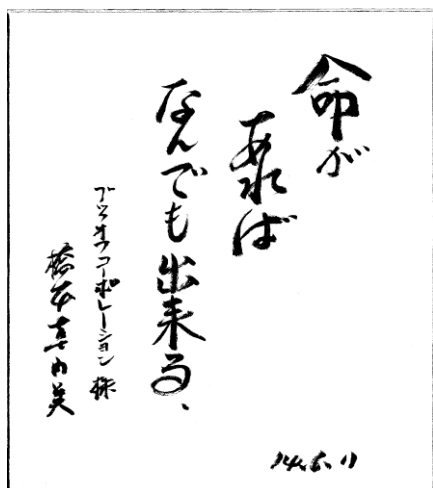 命が
あれば
なんでも出来る、
ブックオフコーポレーション様
橋本真由美
14.6.11